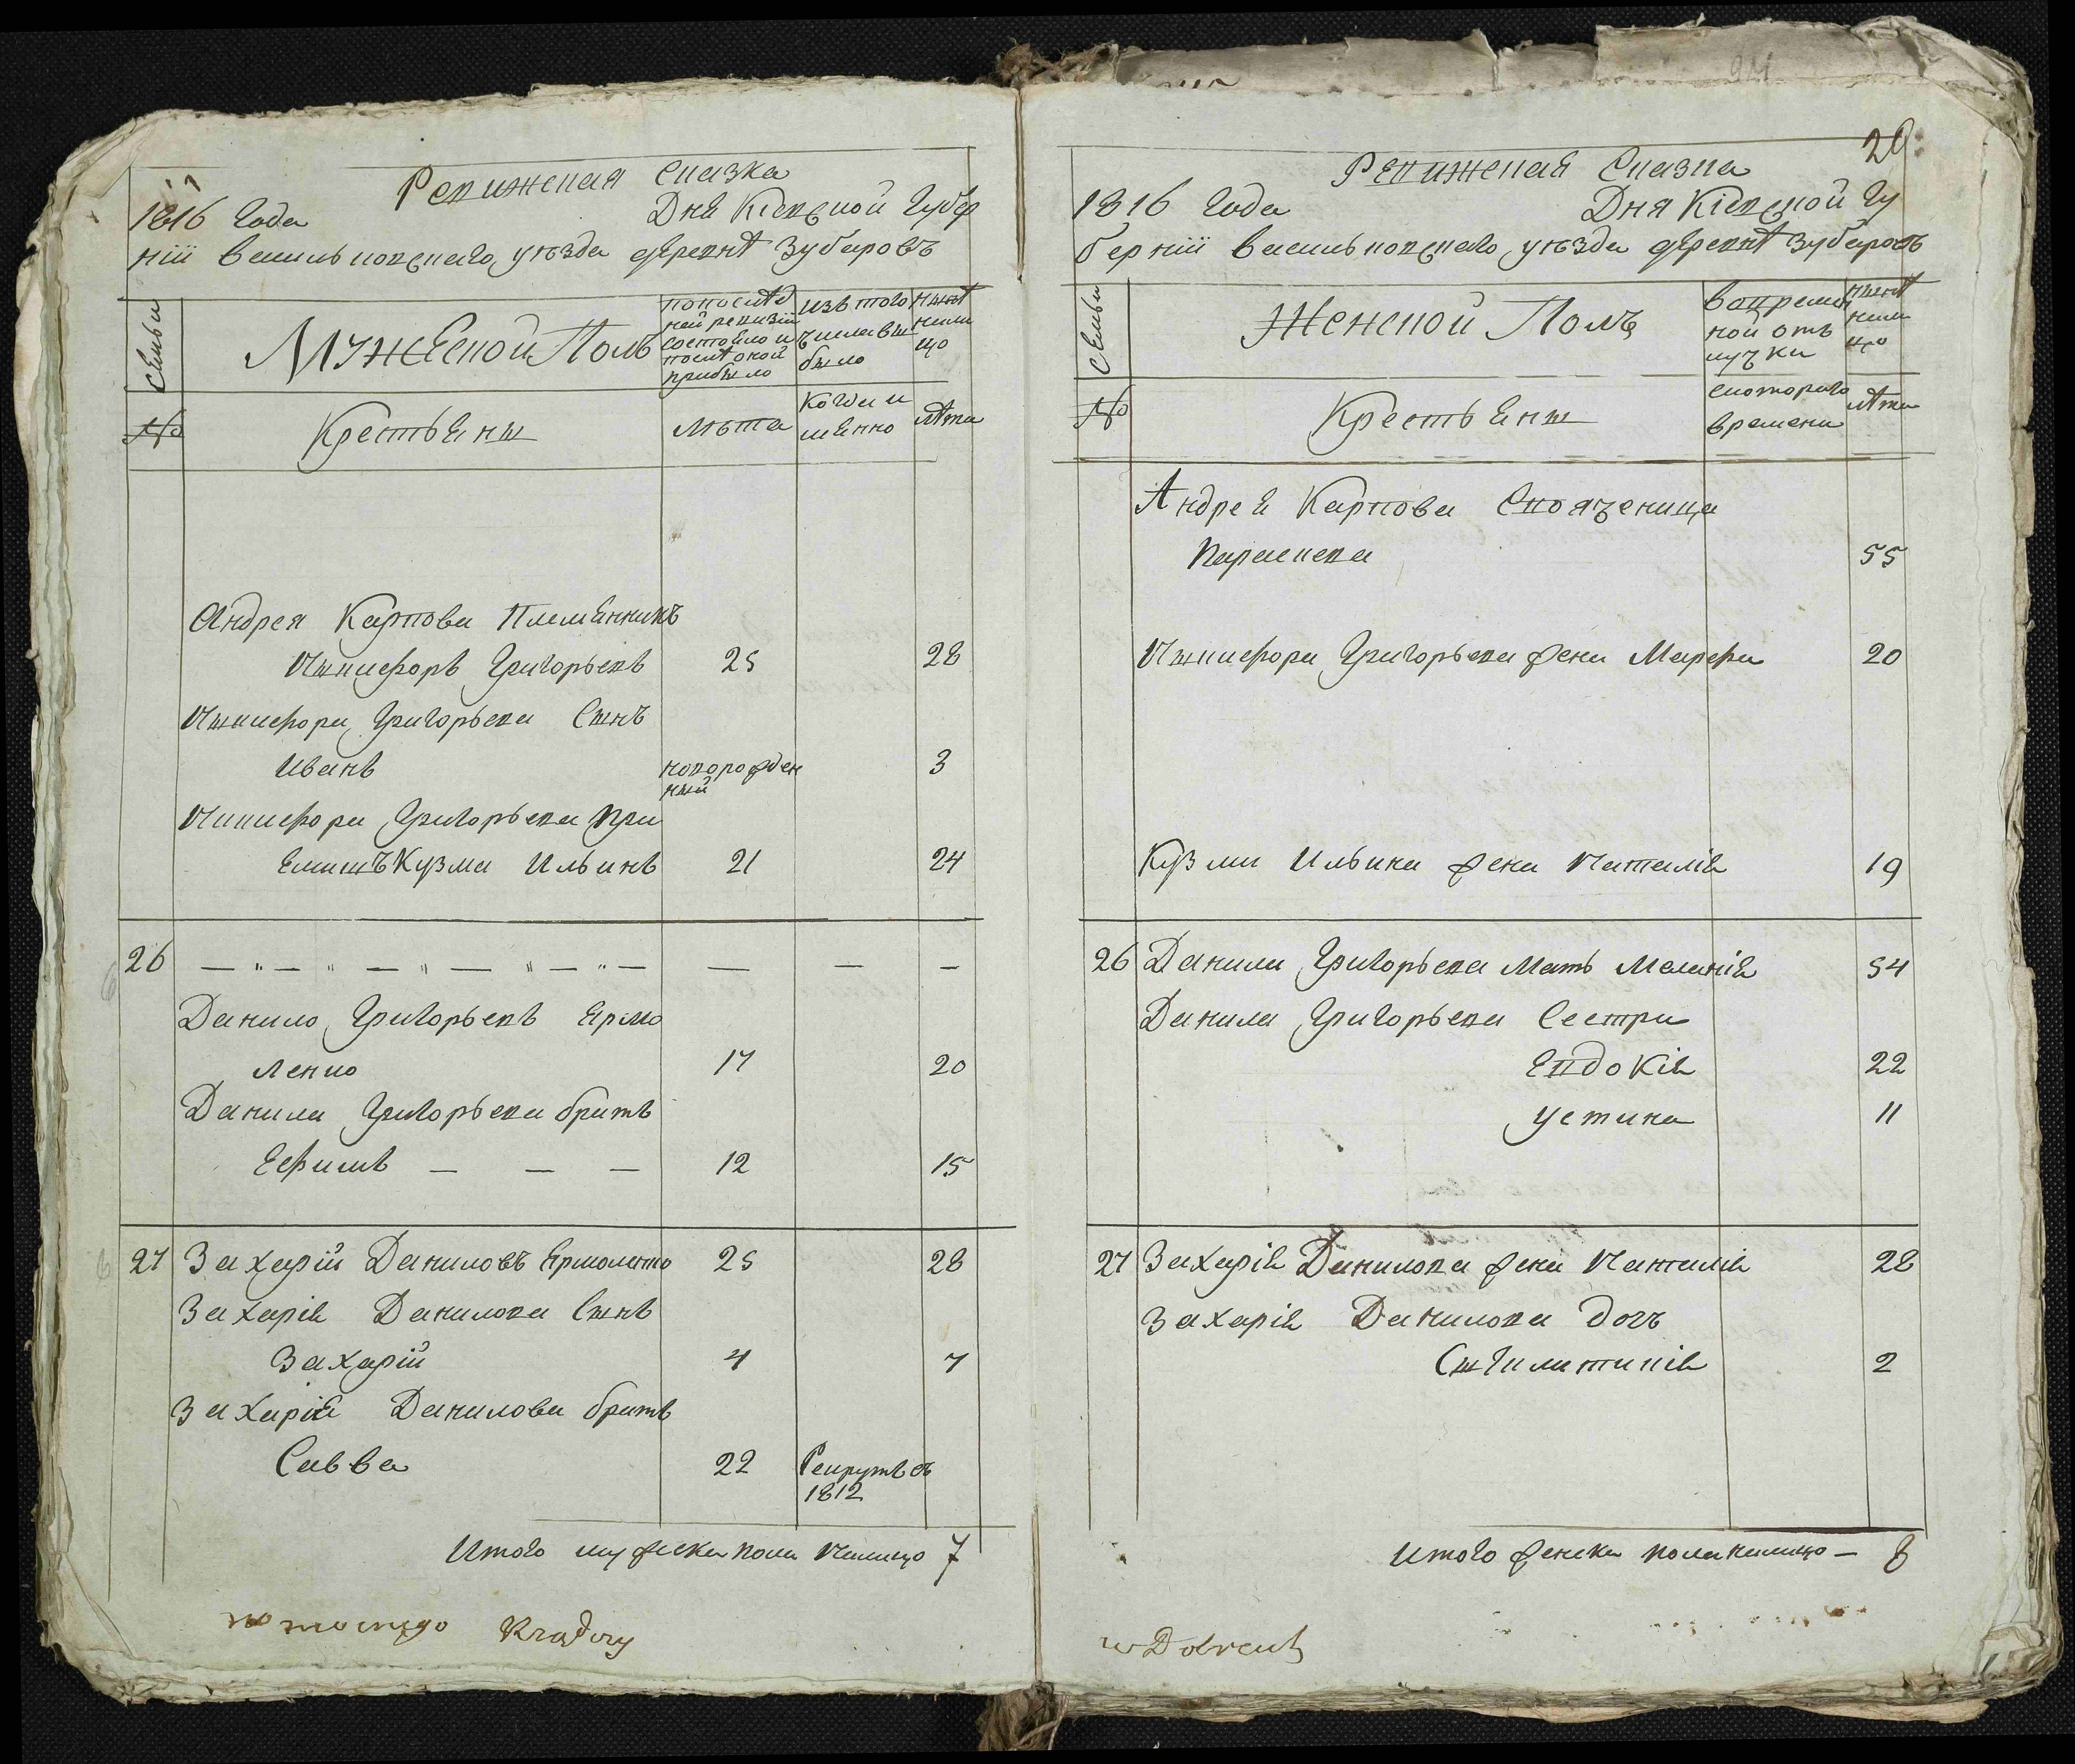 Ревижская Сказка
1816 Года Дня Кіевской Губер
ніи васильковскаго уѣзда деревнѣ Зубаровъ
Семьи
Мужеской Полъ
попослѣд
ней ревизіи
состояло и
послѣ оной
прибыло
изъ того
числа вы
было
нынѣ
нали
цо
№
Крестьяне
лѣта
Когда и
менно
лѣта
Андрея Карпова Племянникъ
Никифоръ Григорьевъ 25 28
Никифора Григорьева Сынъ
Иванъ новорожден 3
ный
Никифора Григорьева При
емышъ Кузма Ильинъ 21 24
26 — „ — „ — „ — „ — „ — — — —
Данило Григорьевъ Ярмо
ленко 17 20
Данила Григорьева братъ
Ефимъ — — — 12 15
27 Захарій Даниловъ Ярмоленко 25 28
Захарія Данилова Сынъ
Захарій 4 7
Захарія Данилова братъ
Савва 22 Рекрутъ съ
1812
Итого мужеска пола налицо 7
29
Ревижская Сказка
1816 Года Дня Кіевской Гу
берніи васильковскаго уѣзда деревнѣ Зубаровъ
Семьи
Женской Полъ
вопремен
ной отъ
лучки
нынѣ
нали
цо
№
Крестьяне
скотораго
времени
лѣта
Андрея Карпова Свояченица
Параскева 55
Никифора Григорьева жена Марфа 20
Кузмы Ильина жена Наталія 19
26 Данила Григорьева Мать Меланія 54
Данила Григорьева Сестри
Евдокія 22
Устина 11
27 Захарія Данилова жена Наталія 28
Захарія Данилова дочъ
2
Итого женска пола налицо — 8